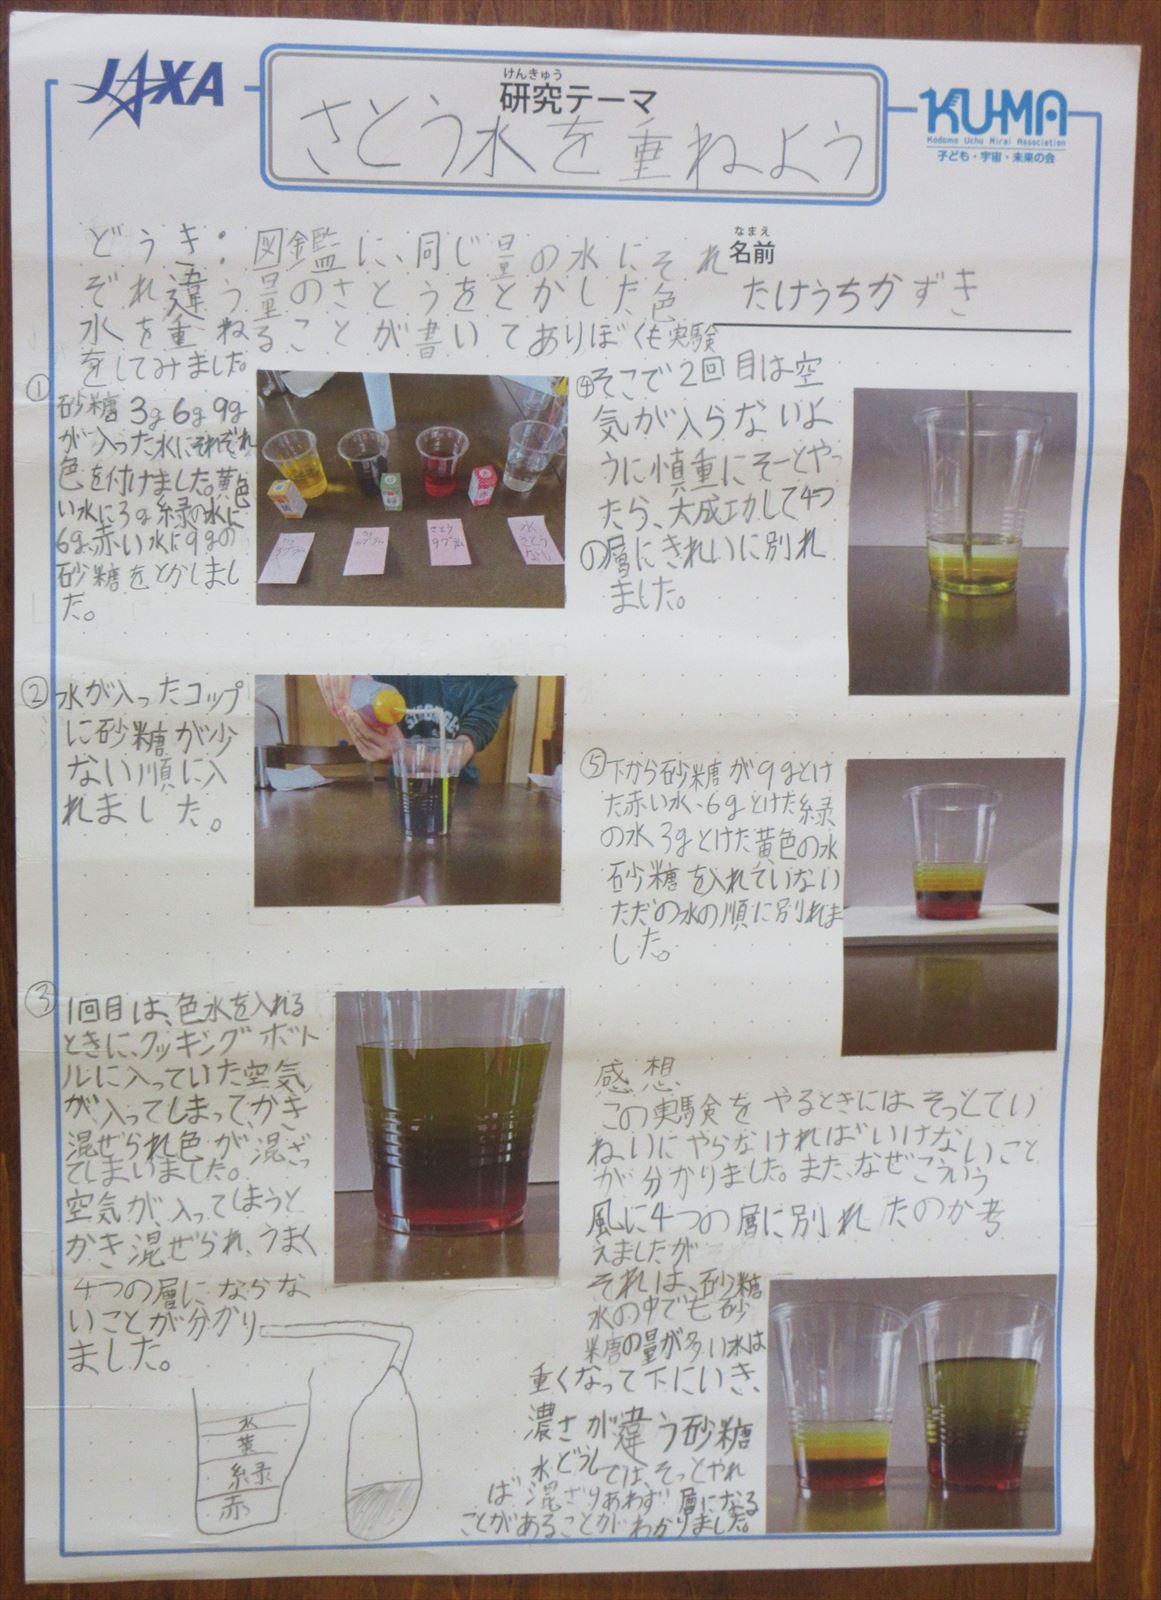 JAXA
けんきゅう
研究テーマ
さとう水を重ねよう
KU-MA
Kodomo Uchu Mirai Association
子ども・宇宙・未来の会
なまえ
名前
たけうちかずき
どうき:図鑑に、同じ量の水にそれ
ぞれ違う量のさとうをとかした色
水を重ねることが書いてありぼくも実験
をしてみました。
①砂糖3g6g9g
が入った水にそれぞれ
色を付けました。黄色
い水に3g緑の水に
6g、赤い水に9gの
砂糖をとかしまし
た。
さとう
9グラム
水
さとう
なし
②水が入ったコップ
に砂糖が少
ない順に入
れました。
③1回目は、色水を入れる
ときに、クッキングボト
ルに入っていた空気
が、入ってしまって、かき
混ぜられ色が混ざっ
てしまいました。
空気が、入ってしまうと
かき混ぜられ、うまく
4つの層にならな
いことが分かり
ました。
水
黄
緑
赤
④そこで2回目は空
気が入らないよ
うに慎重にそーとやっ
たら、大成功して4つ
の層にきれいに別れ
ました。
⑤下から砂糖が9gとけ
た赤い水、6gとけた緑
の水3gとけた黄色の水
砂糖を入れていない
ただの水の順に別れま
した。
感想
この実験をやるときには、そっとてい
ねいにやらなければいけないこと
が分かりました。また、なぜこうゆう
風に4つの層に別れたのか考
えましたが
それは、砂糖
水の中でも砂
糖の量が多い水は
重くなって下にいき、
濃さが違う砂糖
水どうしでは、そっとやれ
ば混ざりあわず層になる
ことがあることがわかりました。